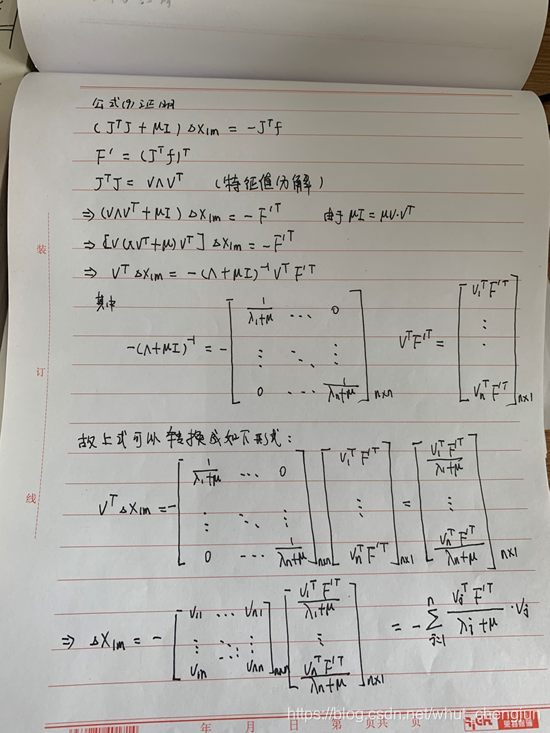 公式(9)证明
(JᵀJ + μI) Δx_lm = -Jᵀf
F' = (Jᵀf)ᵀ
JᵀJ = VΛVᵀ (特征值分解)
⇒ (VΛVᵀ + μI) Δx_lm = -F'ᵀ 由于 μI = μV·Vᵀ
⇒ [V(ΛVᵀ+μ)Vᵀ] Δx_lm = -F'ᵀ
⇒ Vᵀ Δx_lm = -(Λ+μI)⁻¹ Vᵀ F'ᵀ
其中
-(Λ+μI)⁻¹ = - [ 1/(λ₁+μ) ... 0 ; ⋮ ⋱ ⋮ ; 0 ... 1/(λn+μ) ] n×n VᵀF'ᵀ = [ V₁ᵀF'ᵀ ⋮ Vnᵀ F'ᵀ ] n×1
故上式可以转换成如下形式:
Vᵀ Δx_lm = - [ 1/(λ₁+μ) ... 0 ; ⋮ ⋱ ⋮ ; 0 ... 1/(λn+μ) ] n×n [ V₁ᵀ F'ᵀ ⋮ VnᵀF'ᵀ ] n×1 = [ V₁ᵀF'ᵀ/(λ₁+μ) ⋮ VnᵀF'ᵀ/(λn+μ) ] n×1
⇒ Δx_lm = - [ V₁₁ ... Vn₁ ; ⋮ ⋱ ⋮ ; V₁n ... Vnn ] n×n [ V₁ᵀF'ᵀ/(λ₁+μ) ⋮ VnᵀF'ᵀ/(λn+μ) ] n×1 = - Σ_{j=1}^{n} VjᵀF'ᵀ/(λj+μ) · Vj
装
订
线
年 月 日 第 页共 页
https://blog.csdn.net/whut_chengjun